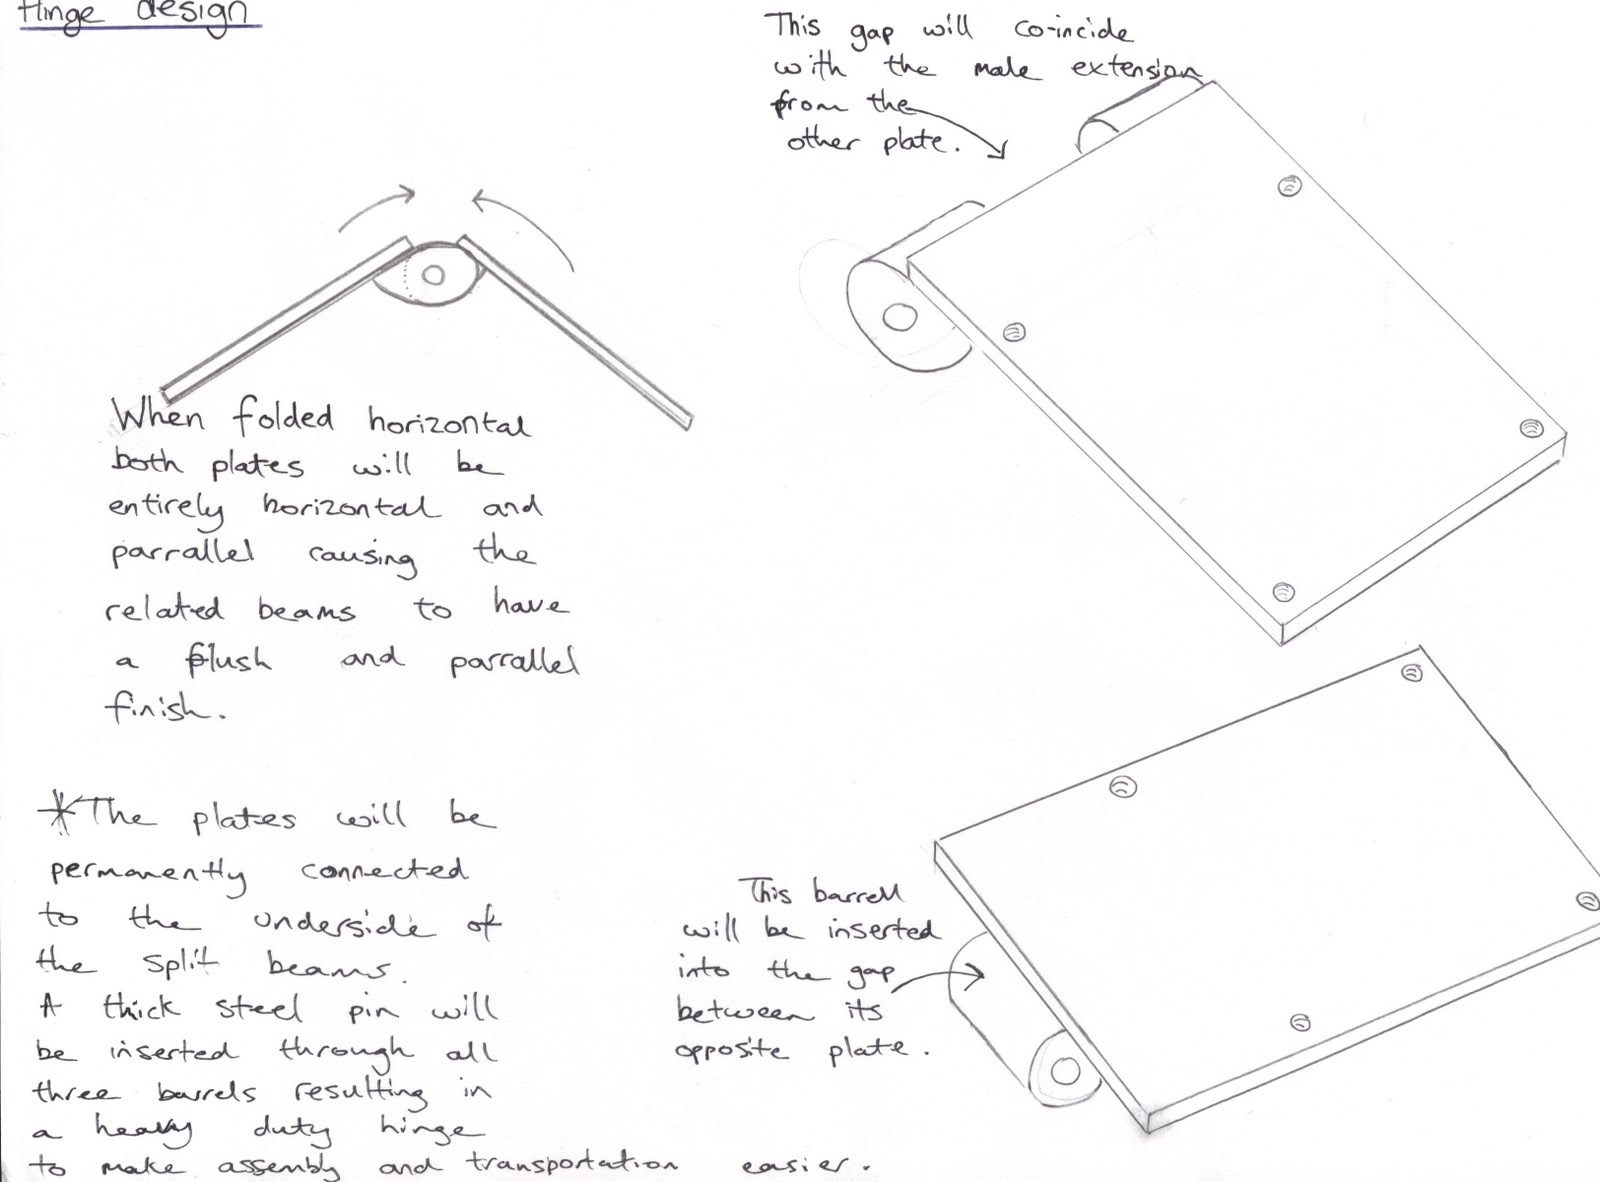 Hinge design
This gap will co-incide
with the male extension
from the
other plate.
When folded horizontal
both plates will be
entirely horizontal and
parrallel causing the
related beams to have
a flush and parrallel
finish.
*The plates will be
permanently connected
to the underside of
the split beams.
A thick steel pin will
be inserted through all
three barrels resulting in
a heavy duty hinge
to make assembly and transportation easier.
This barrell
will be inserted
into the gap
between its
opposite plate.